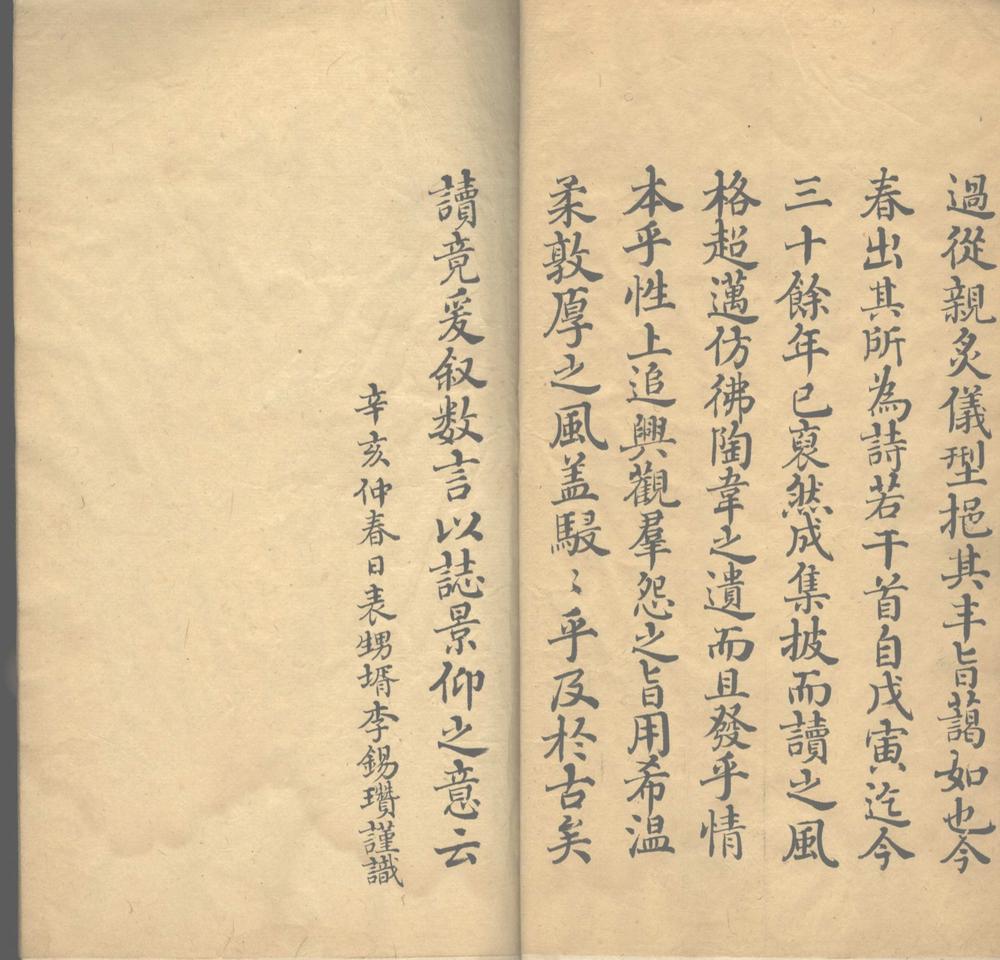 過從親炙儀型挹其丰旨藹如也今
春出其所為詩若干首自戊寅迄今
三十餘年已裒然成集披而讀之風
格超邁仿彿陶韋之遺而且發乎情
本乎性上追興觀羣怨之旨用希温
柔敦厚之風盖駸〻乎及於古矣
讀竟爰叙数言以誌景仰之意云
辛亥仲春日表甥壻李錫瓚謹識